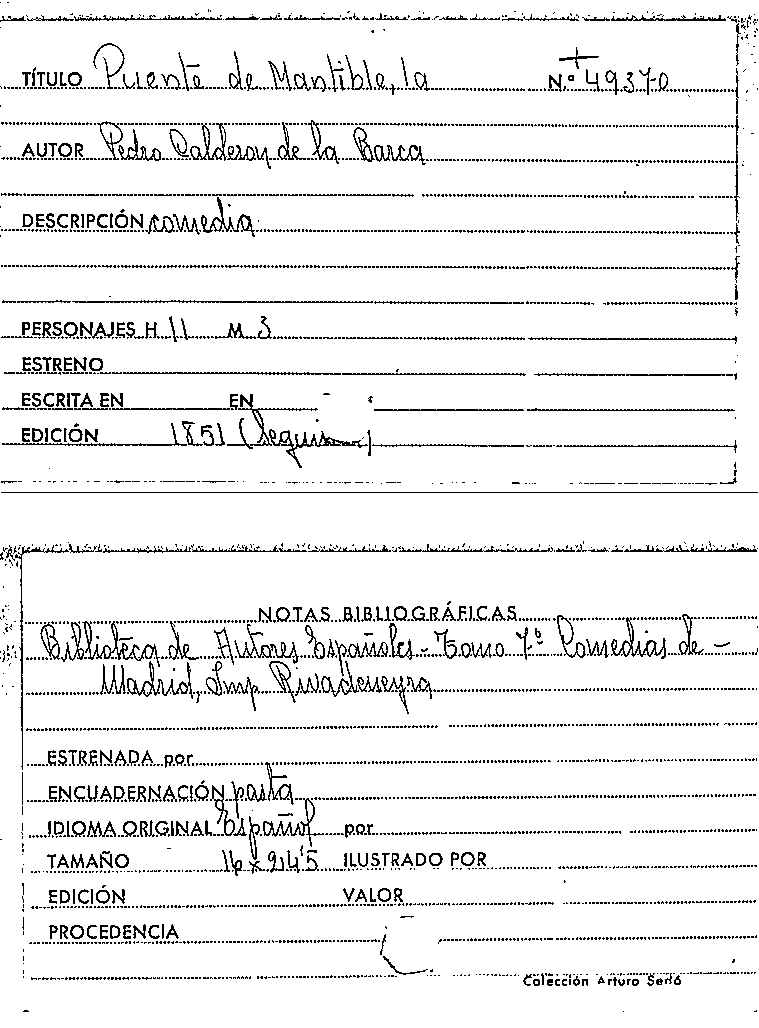 TÍTULO Puente de Mantible, la N.º 49370
AUTOR Pedro Calderon de la Barca
DESCRIPCIÓN comedia
PERSONAJES H 11 M 3
ESTRENO
ESCRITA EN EN
EDICIÓN 1851 (Seguis)
NOTAS BIBLIOGRÁFICAS
Biblioteca de Autores Españoles - Tomo 7.º Comedias de -
Madrid, Imp. Rivadeneyra
ESTRENADA por
ENCUADERNACIÓN pasta
IDIOMA ORIGINAL Español por
TAMAÑO 16 x 24'5 ILUSTRADO POR
EDICIÓN VALOR
PROCEDENCIA
Colección Arturo Sedó